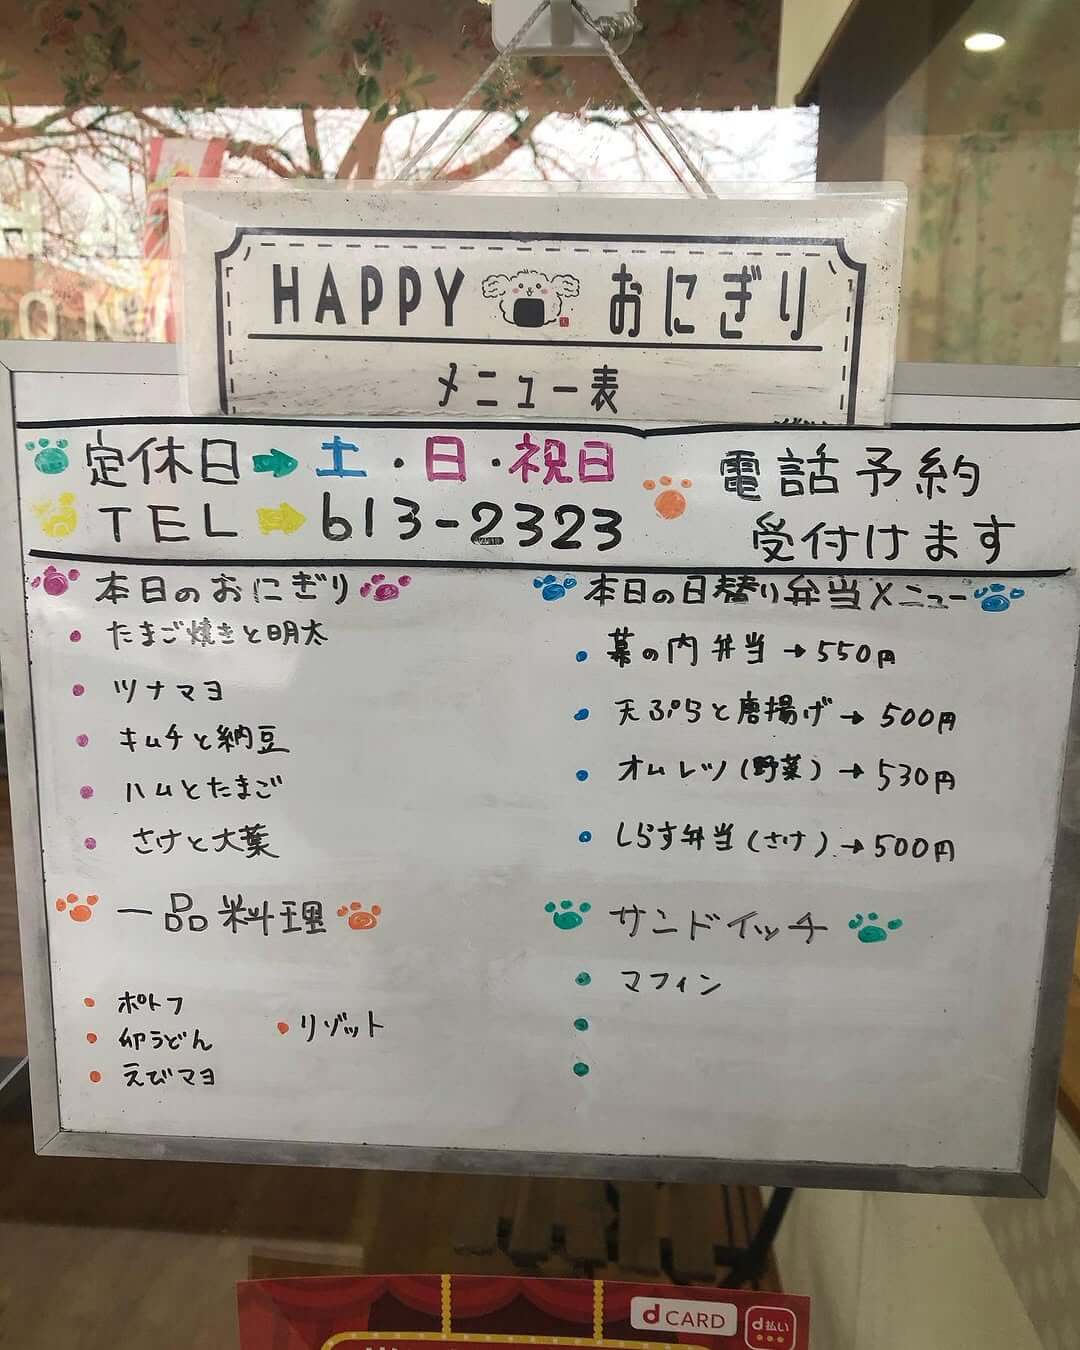 HAPPY おにぎり
メニュー表
定休日→土・日・祝日
TEL→613-2323
電話予約
受付けます
本日のおにぎり
・たまご焼きと明太
・ツナマヨ
・キムチと納豆
・ハムとたまご
・さけと大葉
本日の日替り弁当メニュー
・幕の内弁当→550円
・天ぷらと唐揚げ→500円
・オムレツ(野菜)→530円
・しらす弁当(さけ)→500円
一品料理
・ポトフ
・卵うどん
・えびマヨ
・リゾット
サンドイッチ
・マフィン
d CARD
d払い